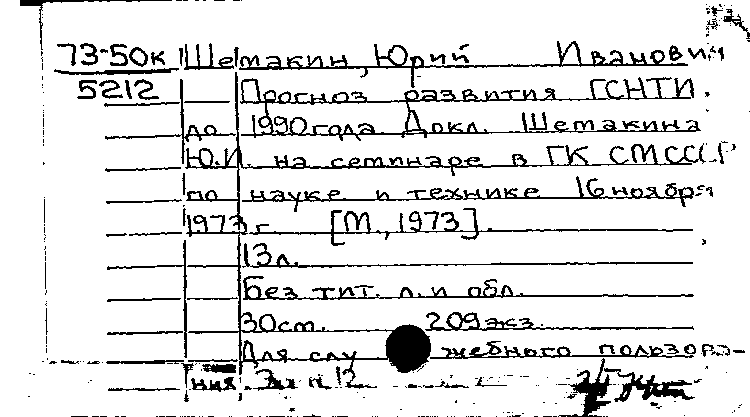 73-50к Шемакин, Юрий Иванович
5212 Прогноз развития ГСНТИ
до 1990 года. Докл. Шемакина
Ю.И. на семинаре в ГК СМ СССР
по науке и технике 16 ноября
1973 г. [М., 1973].
13 л.
Без тит. л. и обл.
30 см. 209 экз.
Для служебного пользова-
ния. Экз N 12